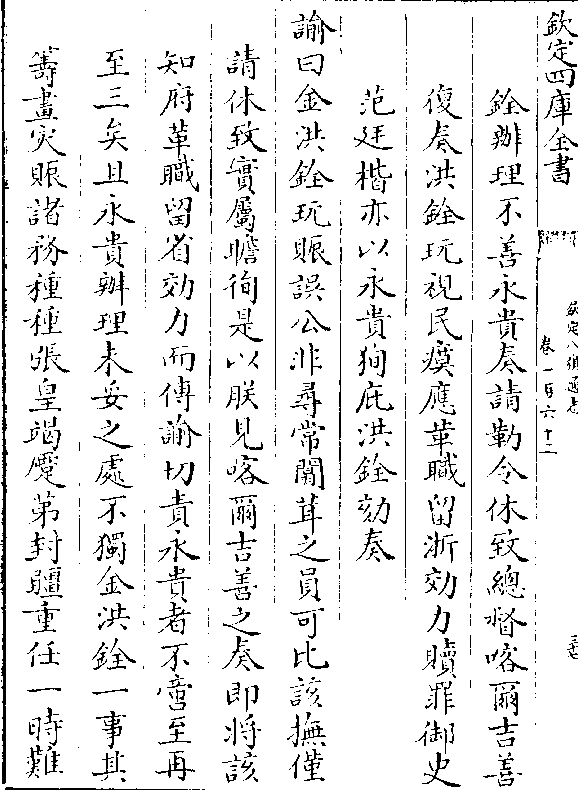 欽定四庫全書
欽定八旗通志
卷一百六十二
銓辦理不善永貴奏請勒令休致總督喀爾吉善
復奏洪銓玩視民瘼應革職留浙効力贖罪御史
范廷楷亦以永貴狥庇洪銓劾奏
諭曰金洪銓玩賑誤公非尋常闒茸之員可比該撫僅
請休致實屬瞻徇是以朕見喀爾吉善之奏即將該
知府革職留省効力而傳諭切責永貴者不啻至再
至三矣且永貴辦理未妥之處不獨金洪銓一事其
籌畫災賑諸務種種張皇竭蹷第封疆重任一時難